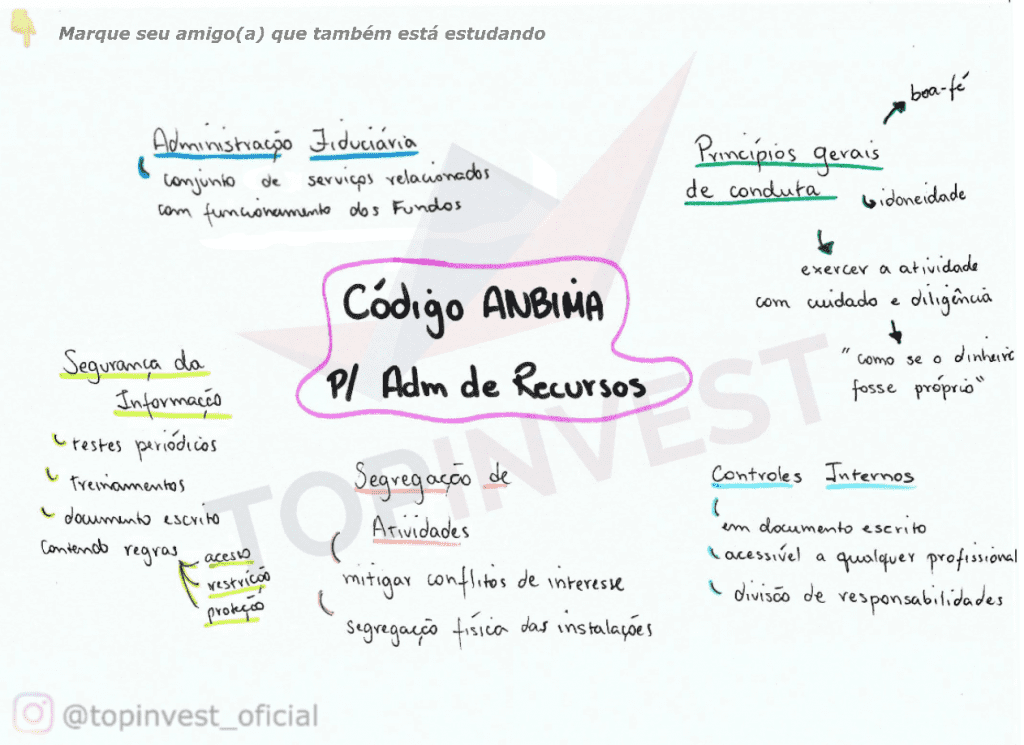 Marque seu amigo(a) que também está estudando
Administração Fiduciária
conjunto de serviços relacionados
com funcionamento dos Fundos
boa-fé
Princípios gerais
de conduta
idoneidade
exercer a atividade
com cuidado e diligência
"como se o dinheiro
fosse próprio"
Código ANBIMA
P/ Adm de Recursos
Segurança da
Informação
testes periódicos
treinamentos
documento escrito
contendo regras
acesso
restrição
proteção
Segregação de
Atividades
mitigar conflitos de interesse
segregação física das instalações
Controles Internos
em documento escrito
acessível a qualquer profissional
divisão de responsabilidades
TOPINVEST
@topinvest_oficial